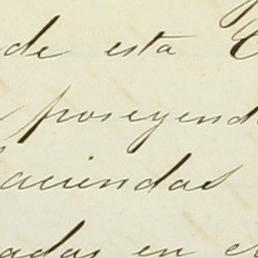 de esta
poseyendo
haciendas
adas en el